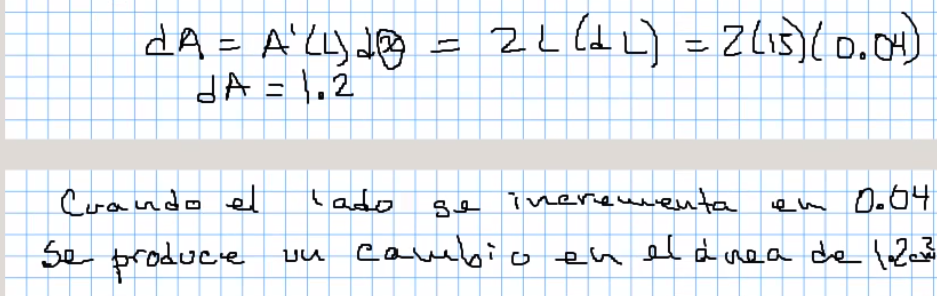 dA = A'(L) dx = 2L(dL) = 2(15)(0.04)
dA = 1.2
Cuando el lado se incrementa en 0.04
Se produce un cambio en el área de 1.2cm²